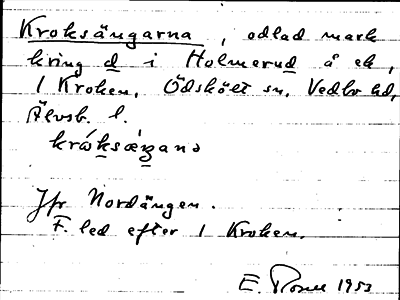 Kroksängarna, odlad mark
kring d i Holmerud å ek,
1 Kroken, Ödskölt sn, Vedbo hd,
Älvsb. l.
króksæŋana
Jfr Nordängen.
F. led efter 1 Kroken.
E. 1953